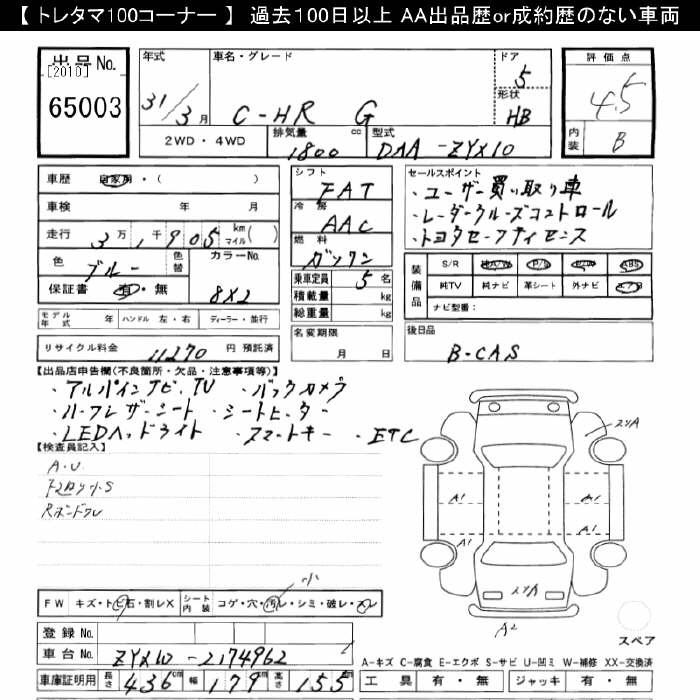 【 トレタマ100コーナー 】 過去100日以上 AA出品歴or成約歴のない車両
出品No.
[2010]
65003
年式 31/3月
車名・グレード C-HR G
ドア 5
形状 HB
評価点 4.5
内装 B
2WD・4WD
排気量 1800 cc
型式 DAA-ZYX10
車歴 自家用・( )
車検 年 月
走行 3万1千905 km マイル( )
色 ブルー 色替
カラーNo. 8X2
保証書 有・無
シフト FAT
冷房 AAC
燃料 ガソリン
乗車定員 5名
積載量 kg
総重量 kg
セールスポイント
・ユーザー買い取り車
・レーダークルーズコントロール
・トヨタセーフティセンス
装備品 S/R 純A/W P/S P/W ABS
純TV 純ナビ 革シート 外ナビ エアB
ナビ型番:
モデル年式 年 ハンドル 左・右 ディーラー・並行
名変期限 月 日
後日品
B-CAS
リサイクル料金 11270 円 預託済
【出品店申告欄(不良箇所・欠品・注意事項等)】
・アルパインナビ、TV ・バックカメラ
・ハーフレザーシート ・シートヒーター
・LEDヘッドライト ・スマートキー ・ETC
【検査員記入】
A・U
A1 A1
A1 A1
A2
FW キズ・トビ石・割レX シート内装 コゲ・穴・汚レ・シミ・破レ・スレ
小
登録No.
車台No. ZYX10-2174962
車庫証明用 長さ 436cm 幅 179cm 高さ 155cm
スペア
A-キズ C-腐食 E-エクボ S-サビ U-凹ミ W-補修 XX-交換済
工具 有・無 ジャッキ 有・無